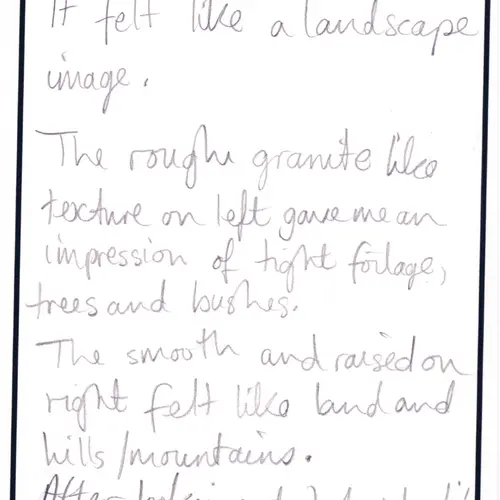 It felt like a landscape
image.
The rough granite like
texture on left gave me an
impression of tight foilage,
trees and bushes.
The smooth and raised on
right felt like land and
hills/mountains.
After